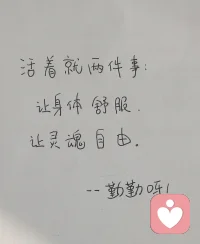 活着就两件事:
让身体舒服.
让灵魂自由.
--勤勤呀!